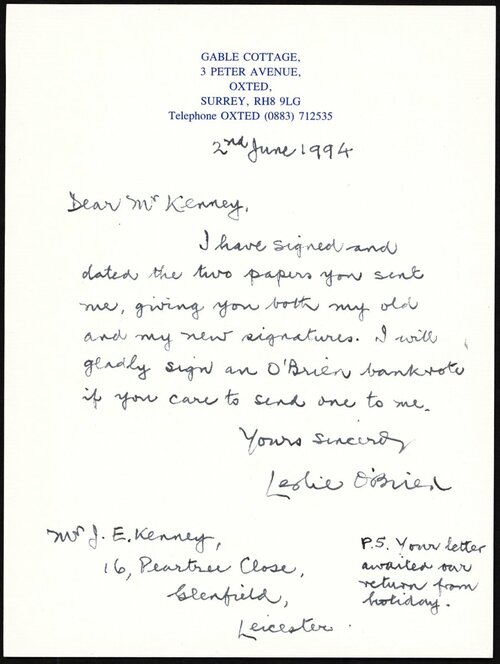 GABLE COTTAGE,
3 PETER AVENUE,
OXTED,
SURREY, RH8 9LG
Telephone OXTED (0883) 712535
2nd June 1994
Dear Mr Kenney,
I have signed and
dated the two papers you sent
me, giving you both my old
and my new signatures. I will
gladly sign an O'Brien banknote
if you care to send one to me.
Yours sincerely
Leslie O'Brien
Mr J. E. Kenney,
16, Peartree Close,
Glenfield,
Leicester.
P.S. Your letter
awaited our
return from
holiday.